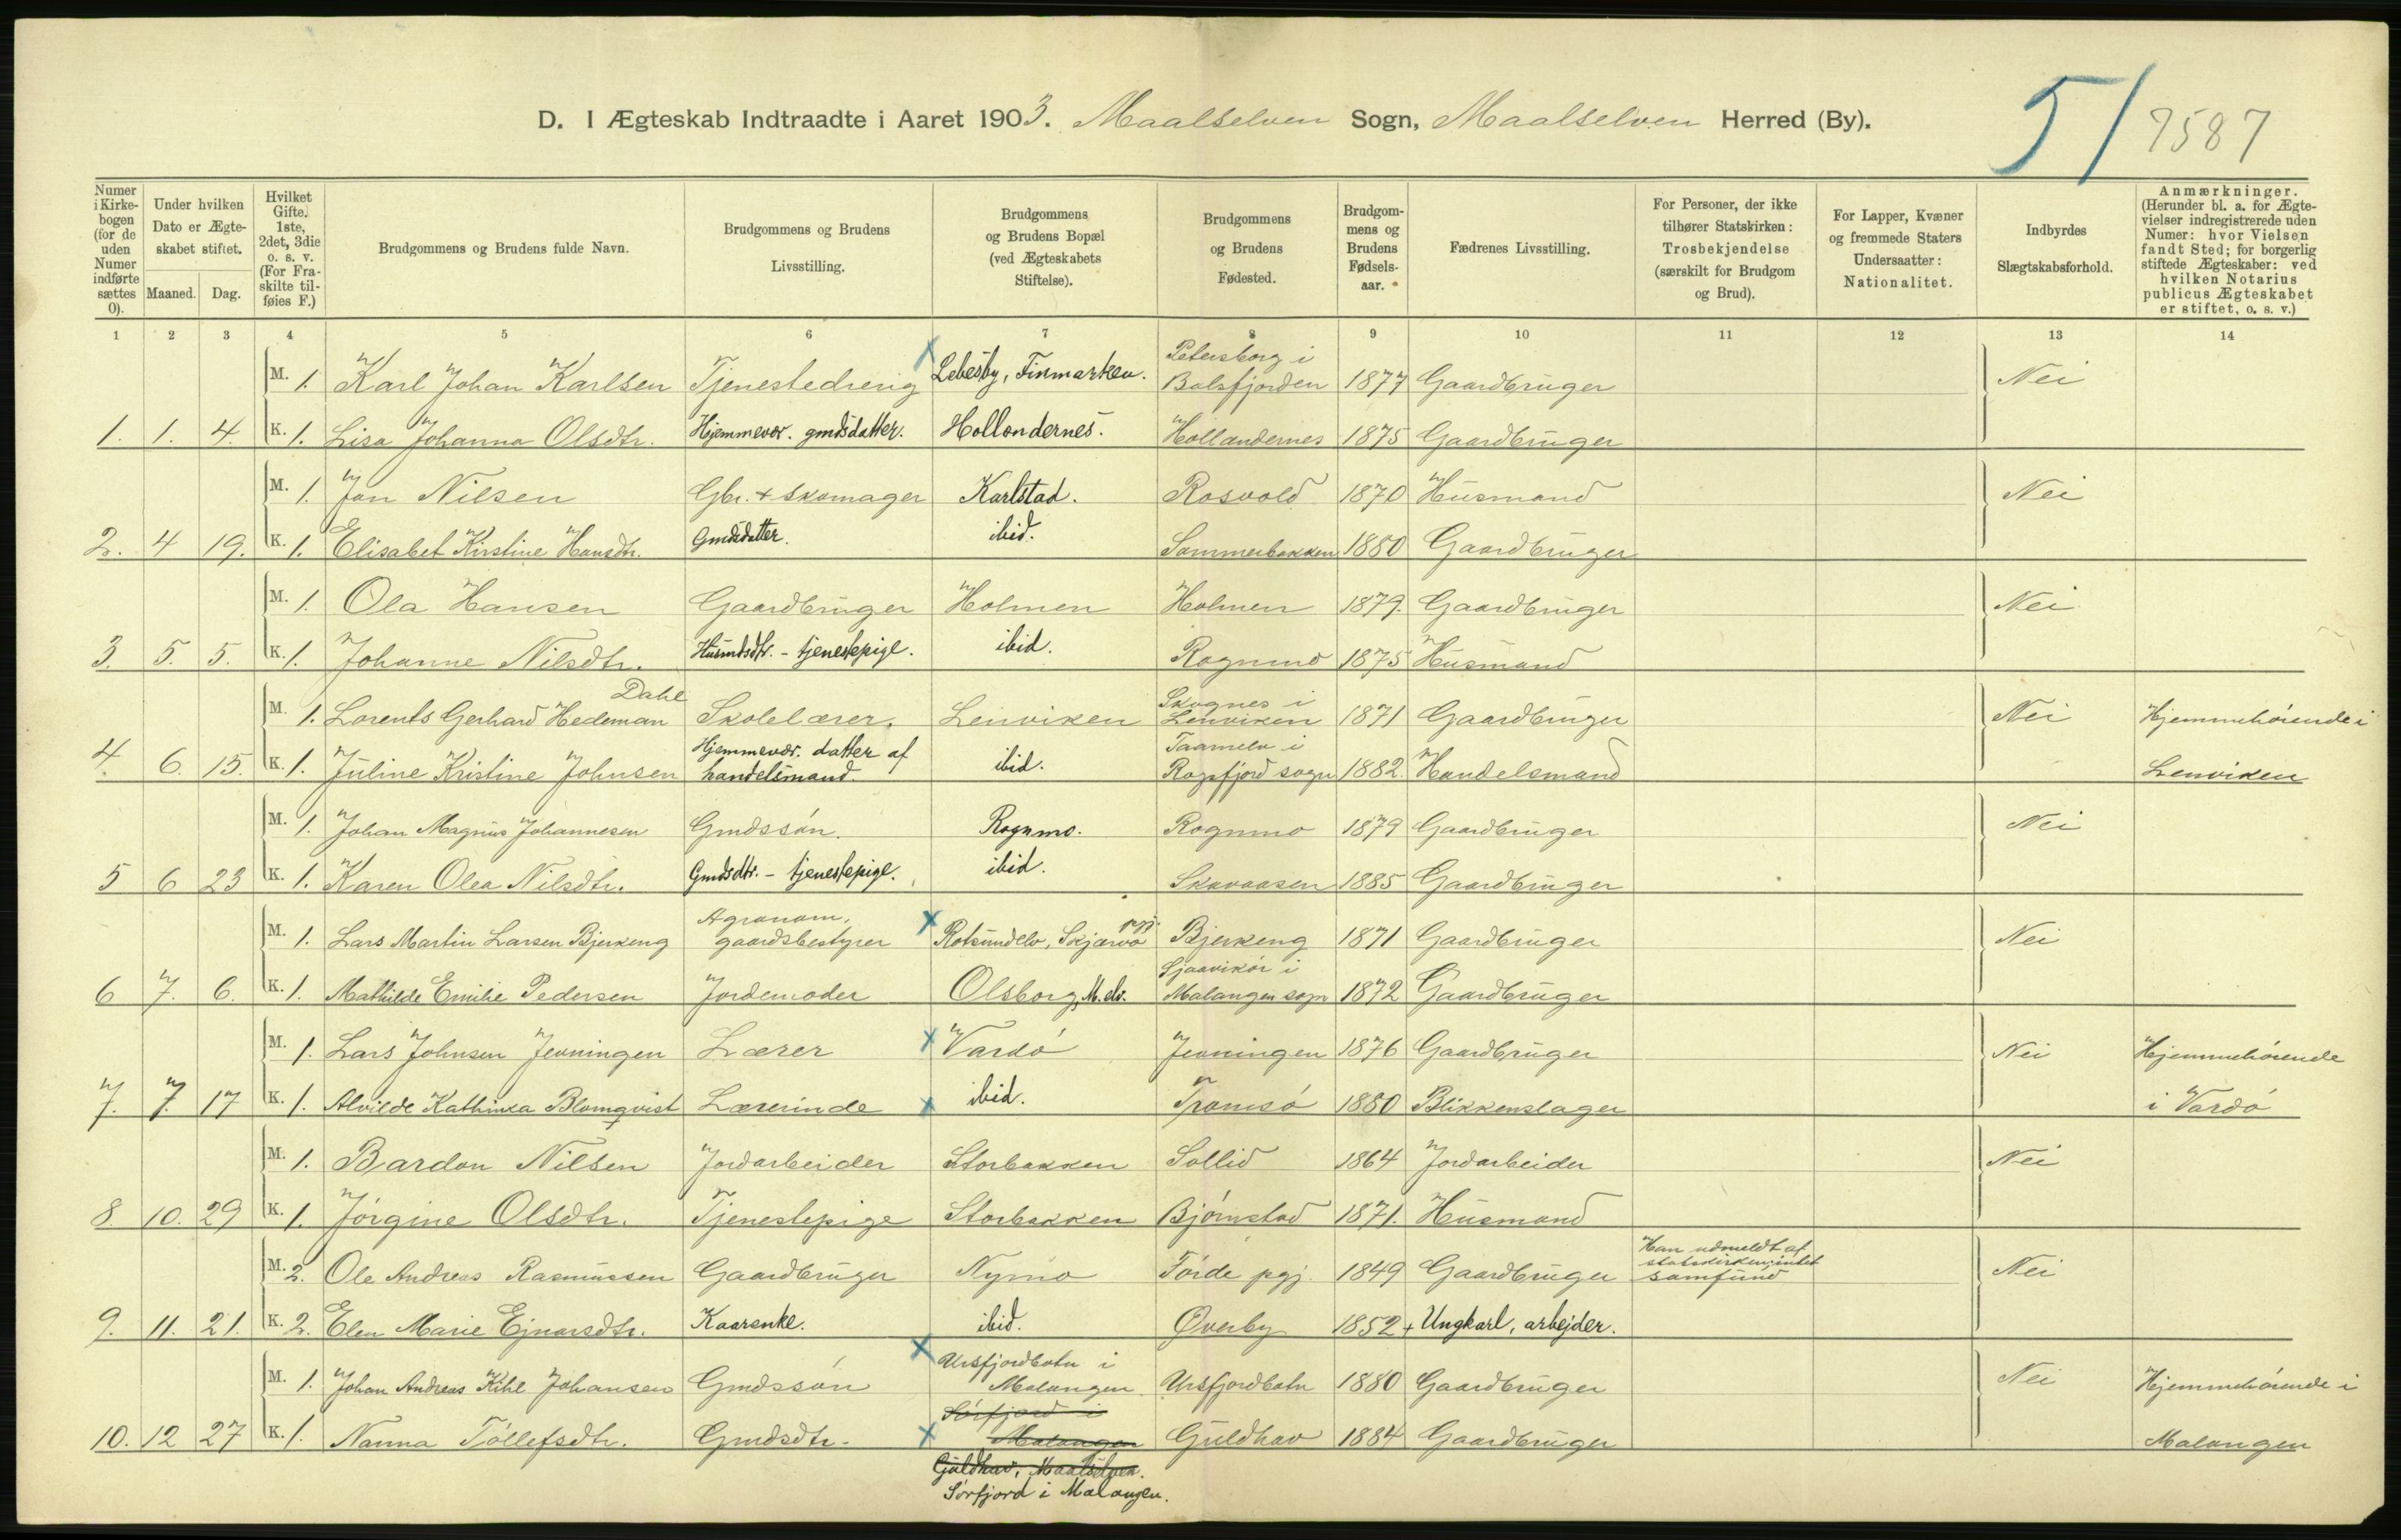 D. I Ægteskab Indtraadte i Aaret 1903. Maalselven Sogn, Maalselven Herred (By).
51
7587
Numer i Kirkebogen (for de uden Numer indførte sættes 0).
Under hvilken Dato er Ægteskabet stiftet.
Maaned. Dag.
Hvilket Gifte. 1ste, 2det, 3die o. s. v. (For Fraskilte tilføies F.)
Brudgommens og Brudens fulde Navn.
Brudgommens og Brudens Livsstilling.
Brudgommens og Brudens Bopæl (ved Ægteskabets Stiftelse).
Brudgommens og Brudens Fødested.
Brudgommens og Brudens Fødselsaar.
Fædrenes Livsstilling.
For Personer, der ikke tilhører Statskirken: Trosbekjendelse (særskilt for Brudgom og Brud).
For Lapper, Kvæner og fremmede Staters Undersaatter: Nationalitet.
Indbyrdes Slægtskabsforhold.
Anmærkninger. (Herunder bl. a. for Ægtevielser indregistrerede uden Numer: hvor Vielsen fandt Sted; for borgerlig stiftede Ægteskaber: ved hvilken Notarius publicus Ægteskabet er stiftet, o. s. v.)
1 2 3 4 5 6 7 8 9 10 11 12 13 14
M. 1. Karl Johan Karlsen Tjenestedreng Lebesby, Finmarken. Petersborg i Balsfjorden 1877 Gaardbruger Nei
1. 1. 4. K. 1. Lisa Johanna Olsdtr. Hjemmevær. gmdsdatter. Hollendernes. Hollandernes 1875 Gaardbruger
M. 1. Jon Nilsen Gbr. + Skomager Karlstad. Rosvold 1870 Husmand Nei
2. 4 19. K. 1. Elisabet Kirstine Hansdtr. Gmdsdatter. ibid. Sommerbakken 1880 Gaardbruger
M. 1. Ola Hansen Gaardbruger Holmen Holmen 1879. Gaardbruger Nei
3. 5. 5. K. 1. Johanne Nilsdtr. Husmdsdtr. - tjenestepige. ibid. Rognmo 1875 Husmand
M. 1. Lorents Gerhard Hedeman Dahl Skolelærer. Lenviken Skognes i Lenviken 1871 Gaardbruger Nei Hjemmehörende i
4. 6. 15. K. 1. Juline Kristine Johnsen Hjemmevær. datter af handelsmand. ibid. Taamelv i Rossfjord sogn 1882. Handelsmand Lenviken
M. 1. Johan Magnus Johannesen Gmdssön. Rognmo. Rognmo 1879 Gaardbruger Nei
5 6 23 K. 1. Karen Olea Nilsdtr. Gmdsdtr. - tjenestepige. ibid. Skavaasen 1885 Gaardbruger
M. 1. Lars Martin Larsen Bjerkeng Agronom, gaardsbestyrer Rotsundelv, Skjærvö pgj. Bjerkeng 1871 Gaardbruger Nei
6 7. 6. K. 1. Mathilde Emilie Pedersen Jordemoder Olsborg, M.elv. Sjaavikör i Malangen sogn 1872 Gaardbruger
M. 1. Lars Johnsen Jevningen Lærer Vardö Jevningen 1876 Gaardbruger Nei Hjemmehörende
7. 7. 17 K. 1. Alvilde Kathinka Blomqvist Lærerinde ibid. Tromsö 1880 Blikkenslager i Vardö
M. 1. Bardon Nilsen Jordarbeider Storbakken Sollid 1864 Jordarbeider Nei
8. 10. 29 K. 1. Jörgine Olsdtr. Tjenestepige Storbakken Björnstad 1871. Husmand
M. 2. Ole Andreas Rasmussen Gaardbruger Nymo Förde pgj. 1849 Gaardbruger Han udmeldt af statskirken; intet samfund Nei
9. 11. 21. K. 2. Elen Marie Ejnarsdtr. Kaarenke. ibid. Øverby 1852 + Ungkarl, arbejder.
M. 1. Johan Andreas Kihl Johansen Gmdssön Ursfjordbotn i Malangen Ursfjordbotn 1880 Gaardbruger Nei Hjemmehörende i
10. 12 27 K. 1. Nanna Töllefsdtr. Gmdsdtr. Sörfjord i Malangen Guldhav 1884 Gaardbruger Malangen
Guldhav, Maalselven.
Sörfjord i Malangen.